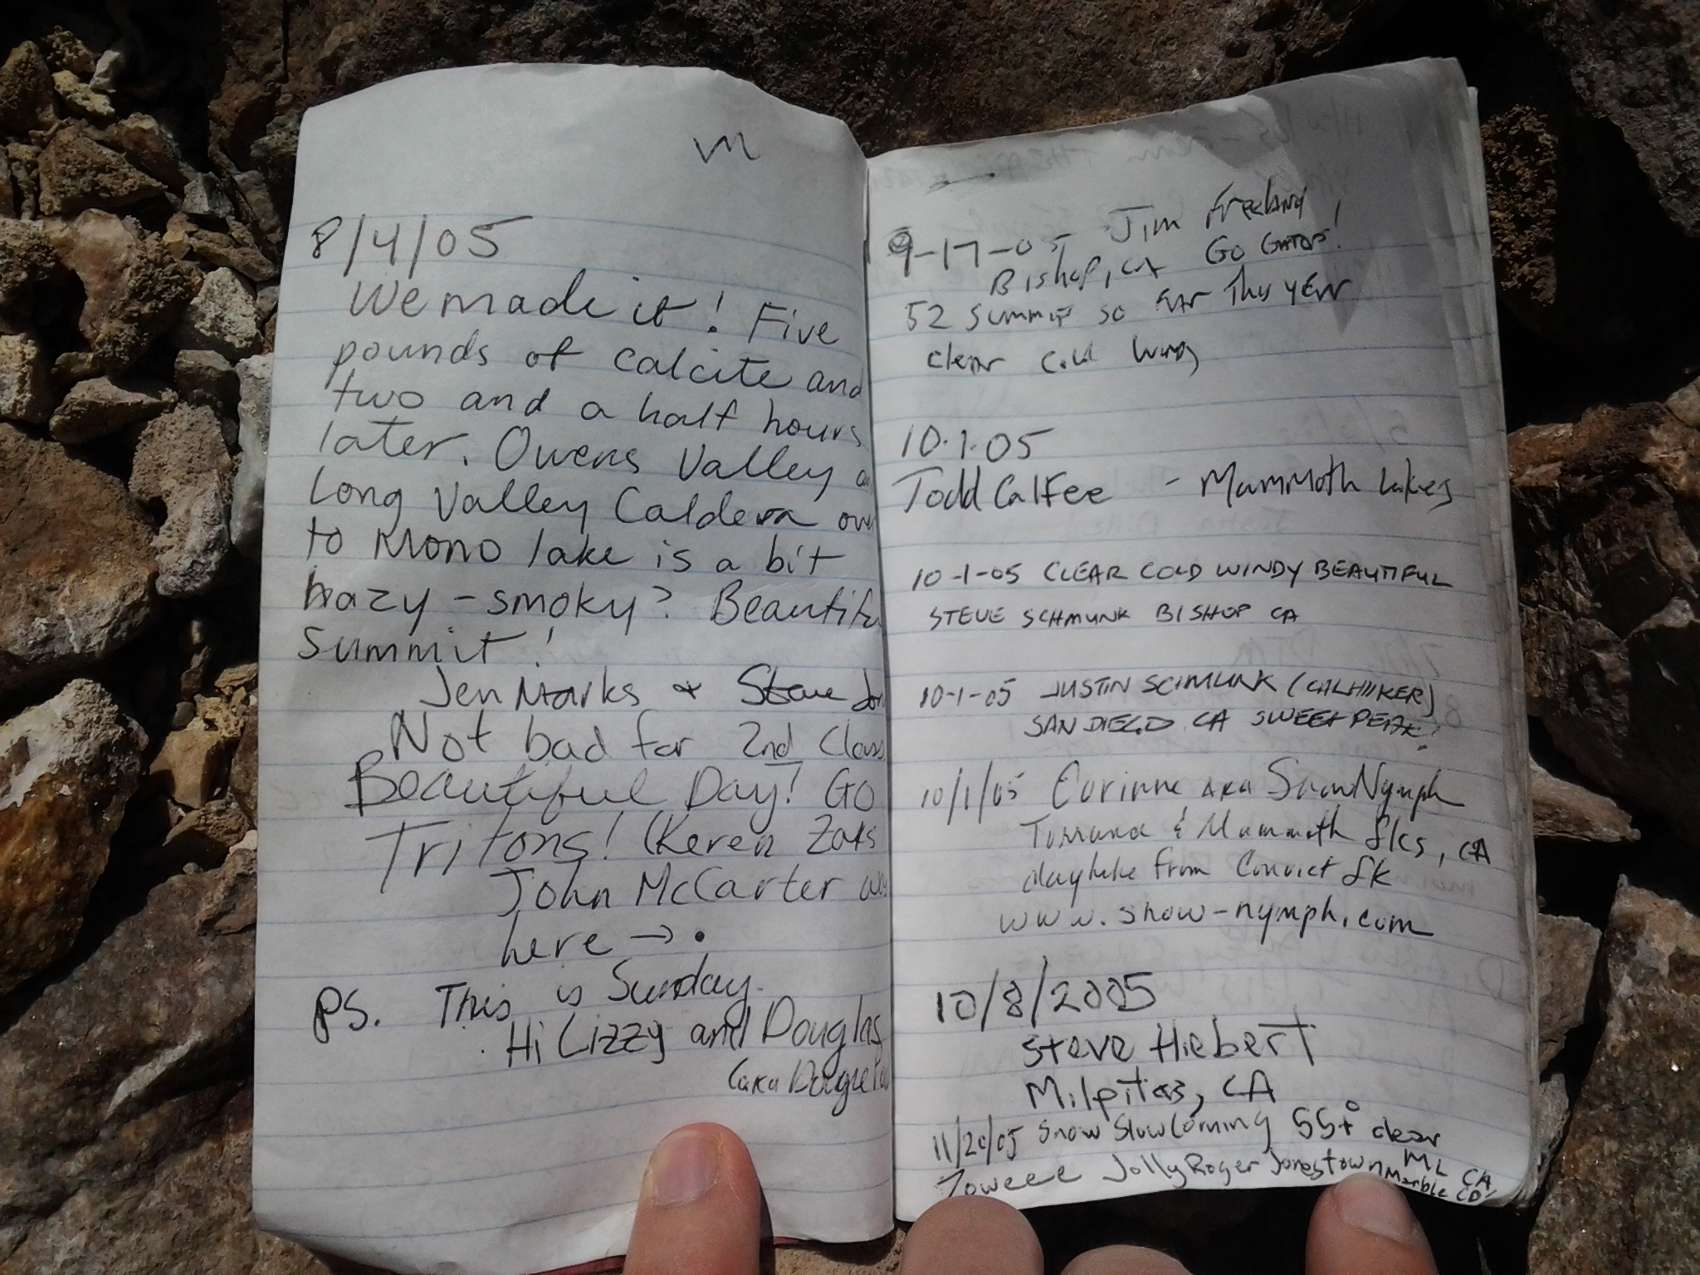 m
8/4/05
We made it! Five
pounds of calcite and
two and a half hours
later. Owens Valley
Long Valley Caldera
to Mono lake is a bit
hazy - smoky? Beautifu
summit!
Jen Marks &
Not bad for 2nd Class
Beautiful Day! Go
Tritons! (Keren Zaks
John McCarter
here → •
PS. This is Sunday.
Hi Lizzy and Douglas
(aka
9-17-05 Jim Freeland
Bishop, CA Go Gators!
52 summits so far this year
clear cold windy
10.1.05
Todd Calfee - Mammoth Lakes
10-1-05 CLEAR COLD WINDY BEAUTIFUL
STEVE SCHMUNK BISHOP CA
10-1-05 JUSTIN SCHMUNK (CALHIKER)
SAN DIEGO CA SWEET PEAK!
10/1/05 Corinne aka SnowNymph
Torrance & Mammoth Lks, CA
dayhike from Convict Lk
www.snow-nymph.com
10/8/2005
Steve Hiebert
Milpitas, CA
11/20/05 Snow Slow Coming 55+° clear
Zoweee Jolly Roger Jonestown ML CA
Marble